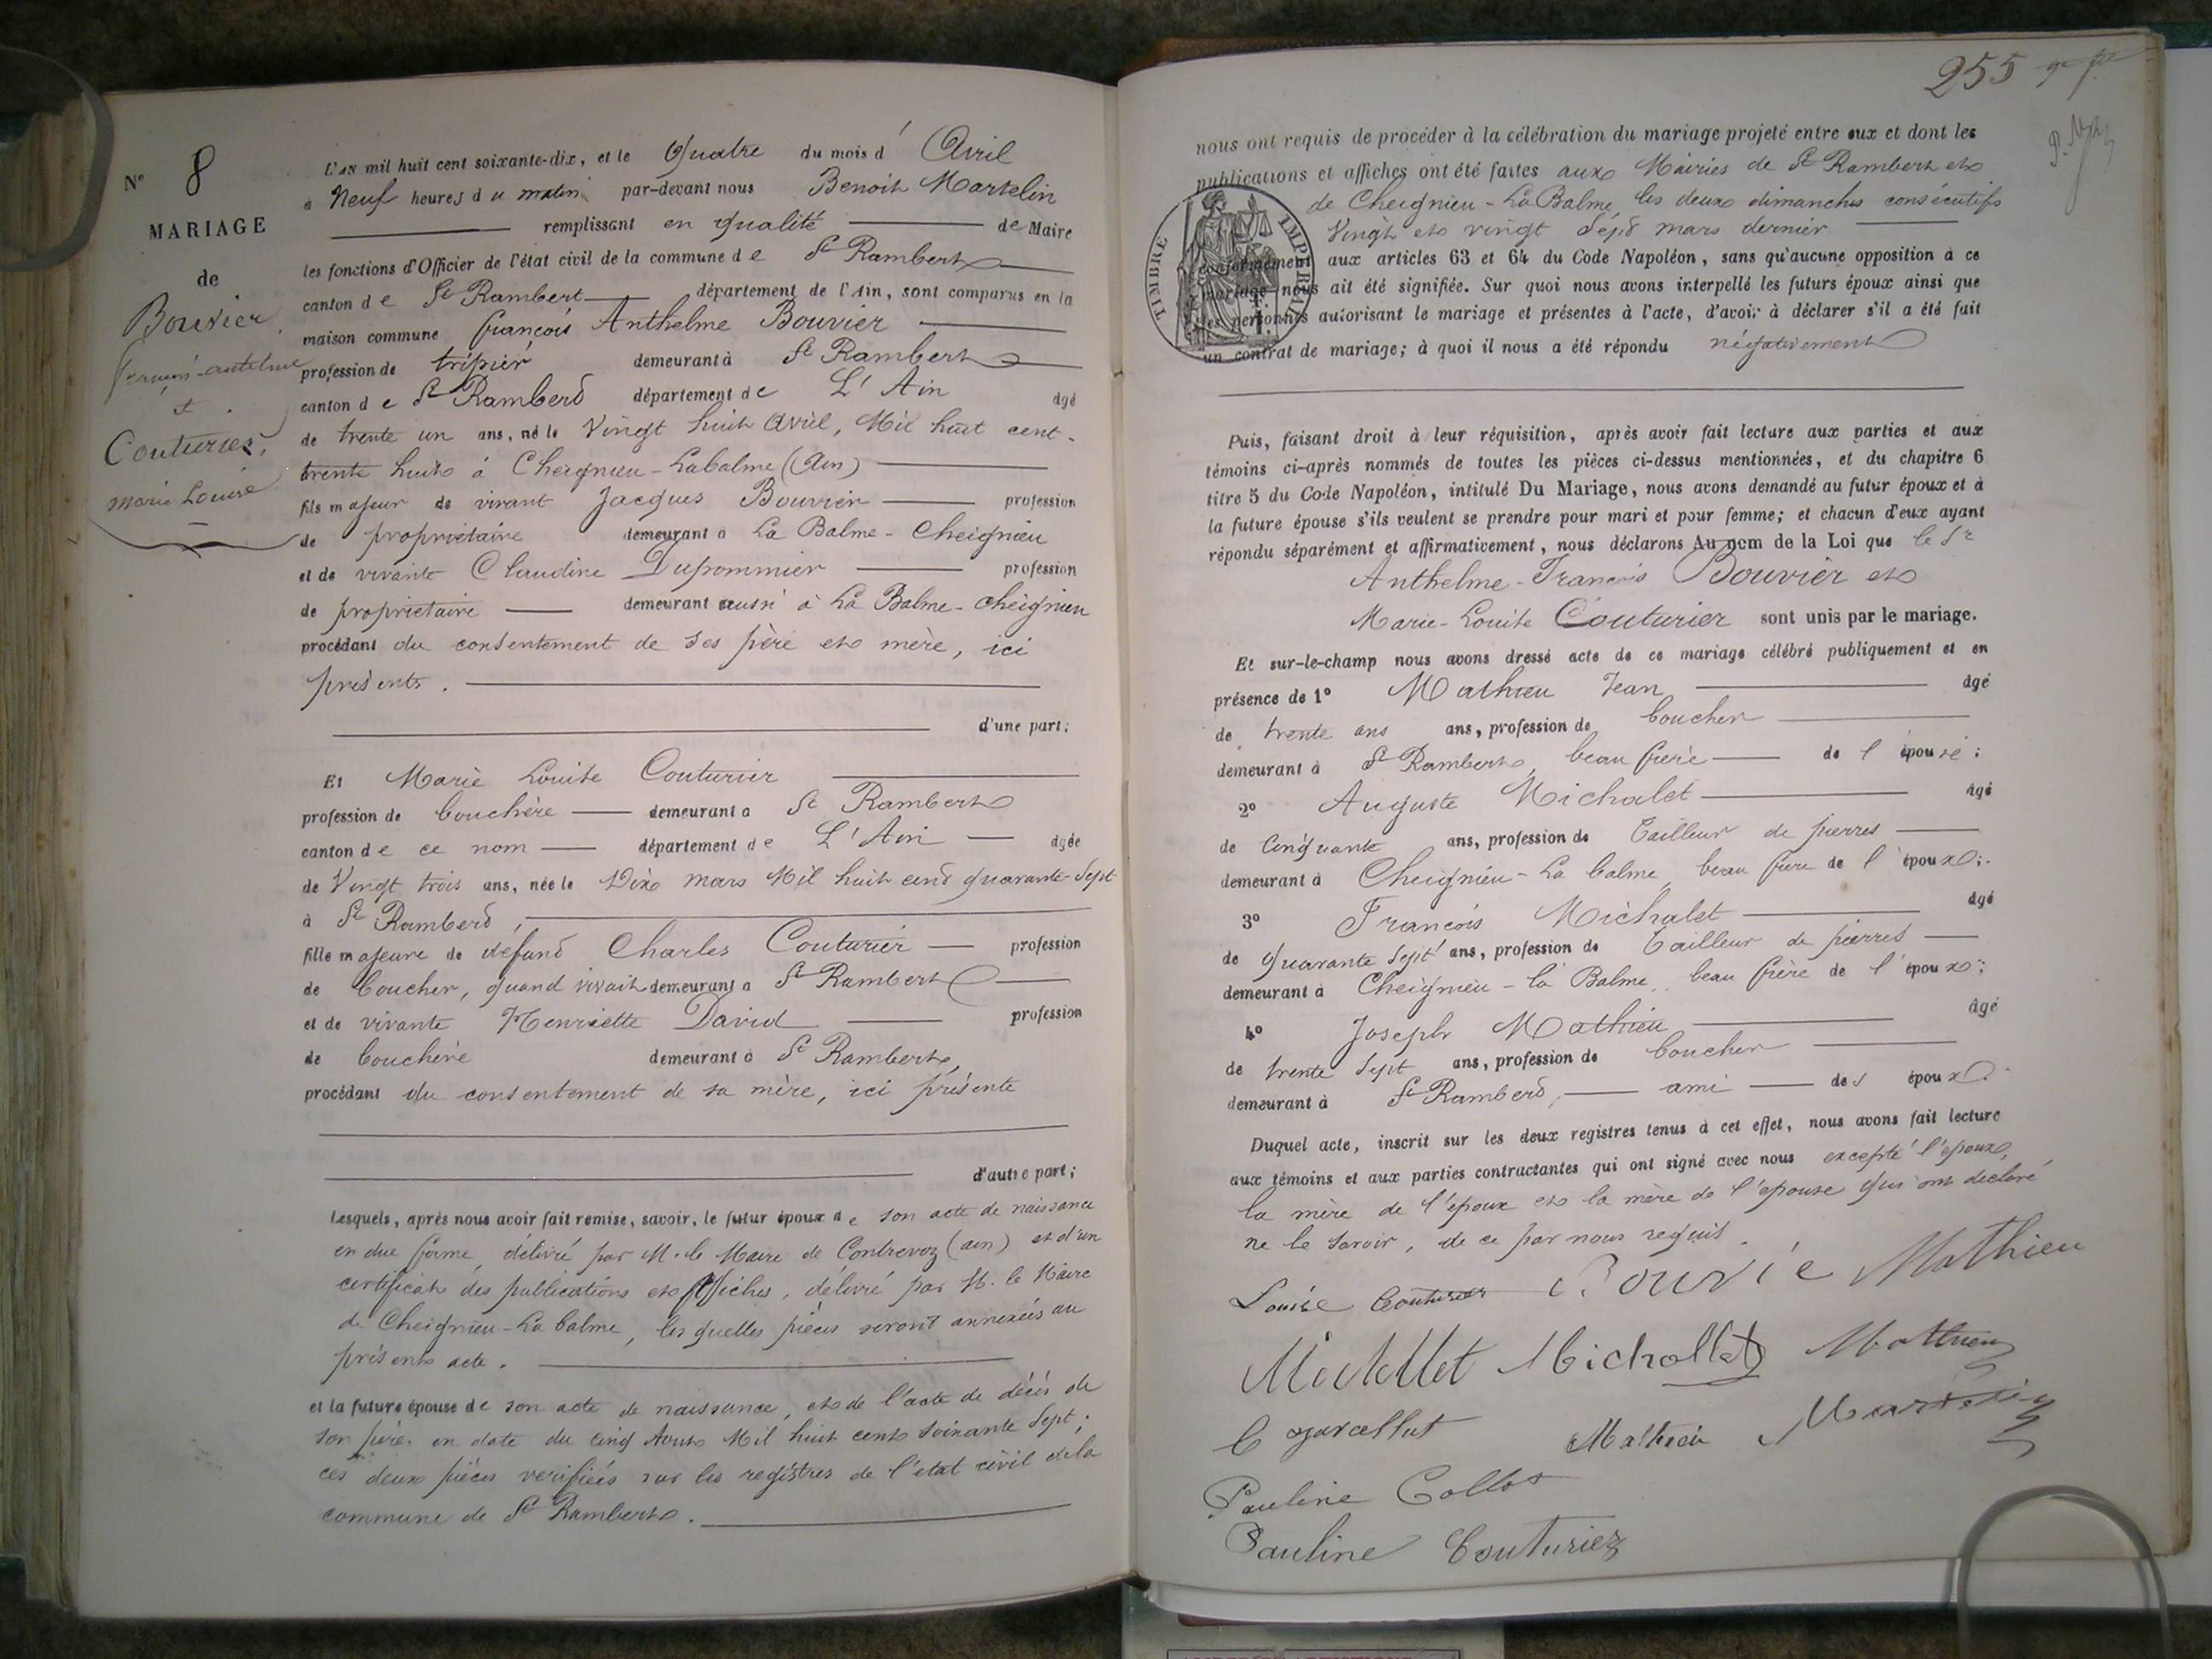 N° 8
MARIAGE
de
Bouvier,
françois-antelme
et
Couturier,
marie Louise
L'AN mil huit cent soixante-dix, et le Quatre du mois d' Avril
à Neuf heures du matin par-devant nous Benoit Martelin
remplissant en qualité de Maire
les fonctions d'Officier de l'état civil de la commune de St Rambert
canton de St Rambert département de l'Ain, sont comparus en la
maison commune françois Anthelme Bouvier
profession de tripier demeurant à St Rambert
canton de St Rambert département de L'Ain âgé
de trente un ans, né le Vingt huit Avril, Mil huit cent
trente huit à Cheignieu-Labalme (Ain)
fils majeur de vivant Jacques Bouvier profession
de propriétaire demeurant à La Balme-Cheignieu
et de vivante Claudine Dupommier profession
de propriétaire demeurant aussi à La Balme-Cheignieu
procédant du consentement de ses père et mère, ici
présents.
d'une part;
Et Marie Louise Couturier
profession de bouchère demeurant à St Rambert
canton de ce nom département de L'Ain âgée
de Vingt trois ans, née le Dix mars Mil huit cent quarante-Sept
à St Rambert,
fille majeure de défunt Charles Couturier profession
de boucher, quand vivait demeurant à St Rambert
et de vivante Henriette David profession
de bouchère demeurant à St Rambert,
procédant du consentement de sa mère, ici présente
d'autre part;
Lesquels, après nous avoir fait remise, savoir, le futur époux de son acte de naissance
en due forme, délivré par M. le Maire de Contrevoz (ain) et d'un
certificat des publications et affiches, délivré par M. le Maire
de Cheignieu-La balme, lesquelles pièces seront annexées au
présent acte.
et la future épouse de son acte de naissance, et de l'acte de décès de
son père en date du cinq Août Mil huit cent soixante Sept;
ces deux pièces verifiées sur les registres de l'etat civil de la
commune de St Rambert.
255
nous ont requis de procéder à la célébration du mariage projeté entre eux et dont les
publications et affiches ont été faites aux Mairies de St Rambert et
de Cheignieu-La Balme, les deux dimanches consécutifs
Vingt et vingt Sept mars dernier
TIMBRE IMPERIAL
conformément aux articles 63 et 64 du Code Napoléon, sans qu'aucune opposition à ce
mariage nous ait été signifiée. Sur quoi nous avons interpellé les futurs époux ainsi que
les personnes autorisant le mariage et présentes à l'acte, d'avoir à déclarer s'il a été fait
un contrat de mariage; à quoi il nous a été répondu négativement
Puis, faisant droit à leur réquisition, après avoir fait lecture aux parties et aux
témoins ci-après nommés de toutes les pièces ci-dessus mentionnées, et du chapitre 6
titre 5 du Code Napoléon, intitulé Du Mariage, nous avons demandé au futur époux et à
la future épouse s'ils veulent se prendre pour mari et pour femme; et chacun d'eux ayant
répondu séparément et affirmativement, nous déclarons Au nom de la Loi que le Sr
Anthelme-François Bouvier et
Marie-Louise Couturier sont unis par le mariage.
Et sur-le-champ nous avons dressé acte de ce mariage célébré publiquement et en
présence de 1° Mathieu Jean âgé
de trente ans ans, profession de boucher
demeurant à St Rambert, beau frère de l'épouse;
2° Auguste Michalet âgé
de Cinquante ans, profession de Tailleur de pierres
demeurant à Cheignieu-La balme, beau frère de l'époux;
3° François Michalet âgé
de Quarante Sept ans, profession de Tailleur de pierres
demeurant à Cheignieu-la Balme, beau frère de l'époux;
4° Joseph Mathieu âgé
de trente Sept ans, profession de boucher
demeurant à St Rambert, ami des époux.
Duquel acte, inscrit sur les deux registres tenus à cet effet, nous avons fait lecture
aux témoins et aux parties contractantes qui ont signé avec nous excepté l'époux,
la mère de l'époux et la mère de l'épouse qui ont déclaré
ne le savoir, de ce par nous requis.
Louise Couturier Bouvié Mathieu
Michallet Michallet Mathieu
Mathieu Martelin
Pauline Collot
Pauline Couturier